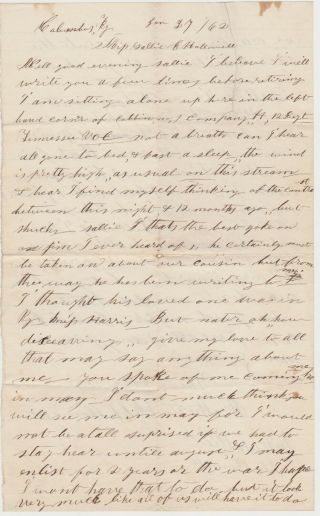 Columbus, Ky Jan 27 / 62
Miss Sallie
Well good evening Sallie I beleave I will
write you a fiew lines before retiring
I am sitting alone up here in the left
hand corner of cabbin of Company H, 12 Regt
Tennessee Vol not a breath can I hear
all gone to bed & fast a sleep, the wind
is pretty high, as usual on this stream
& hear I find myself thinking of the contrast
between this night & 12 months ago, but
shucks Sallie thats the best goke on
Jim I ever heard of, he certainly must
be taken on about our cousin but from
the way he has bin writing to me
I thought his loved one was in
Ky miss Harris But nater oh how
deceaving, give my love to all
that may say anything about
me you spoke of me coming home
in may I dont much think you
will see me in may for I would
not be atall suprised if we had to
stay hear untill august, & I may
enlist for 2 years or the war I hope
I wont have that to do, but it look
very much like all of us will have it to do